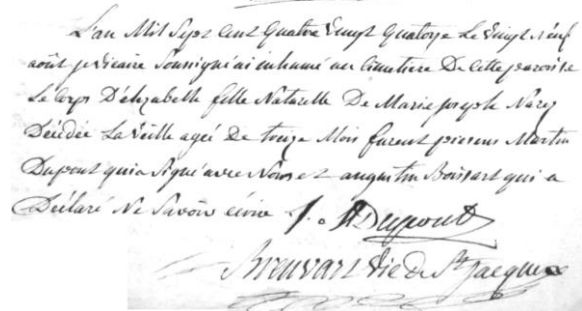 L'an Mil Sept Cent Quatre Vingt Quatorze Le Vingt Neuf
août je vicaire Soussigné ai inhumé au Cimetiere De Cette paroisse
Le Corps D'elizabette fille Naturelle De Marie joseph
Décédée La veille agé De Mois furent presens Martin
Dupont qui a Signé avec Nous et augustin Boissart qui a
Déclaré Ne Savoir écrire
Dupont
Breuvart Vic. de St. jacques